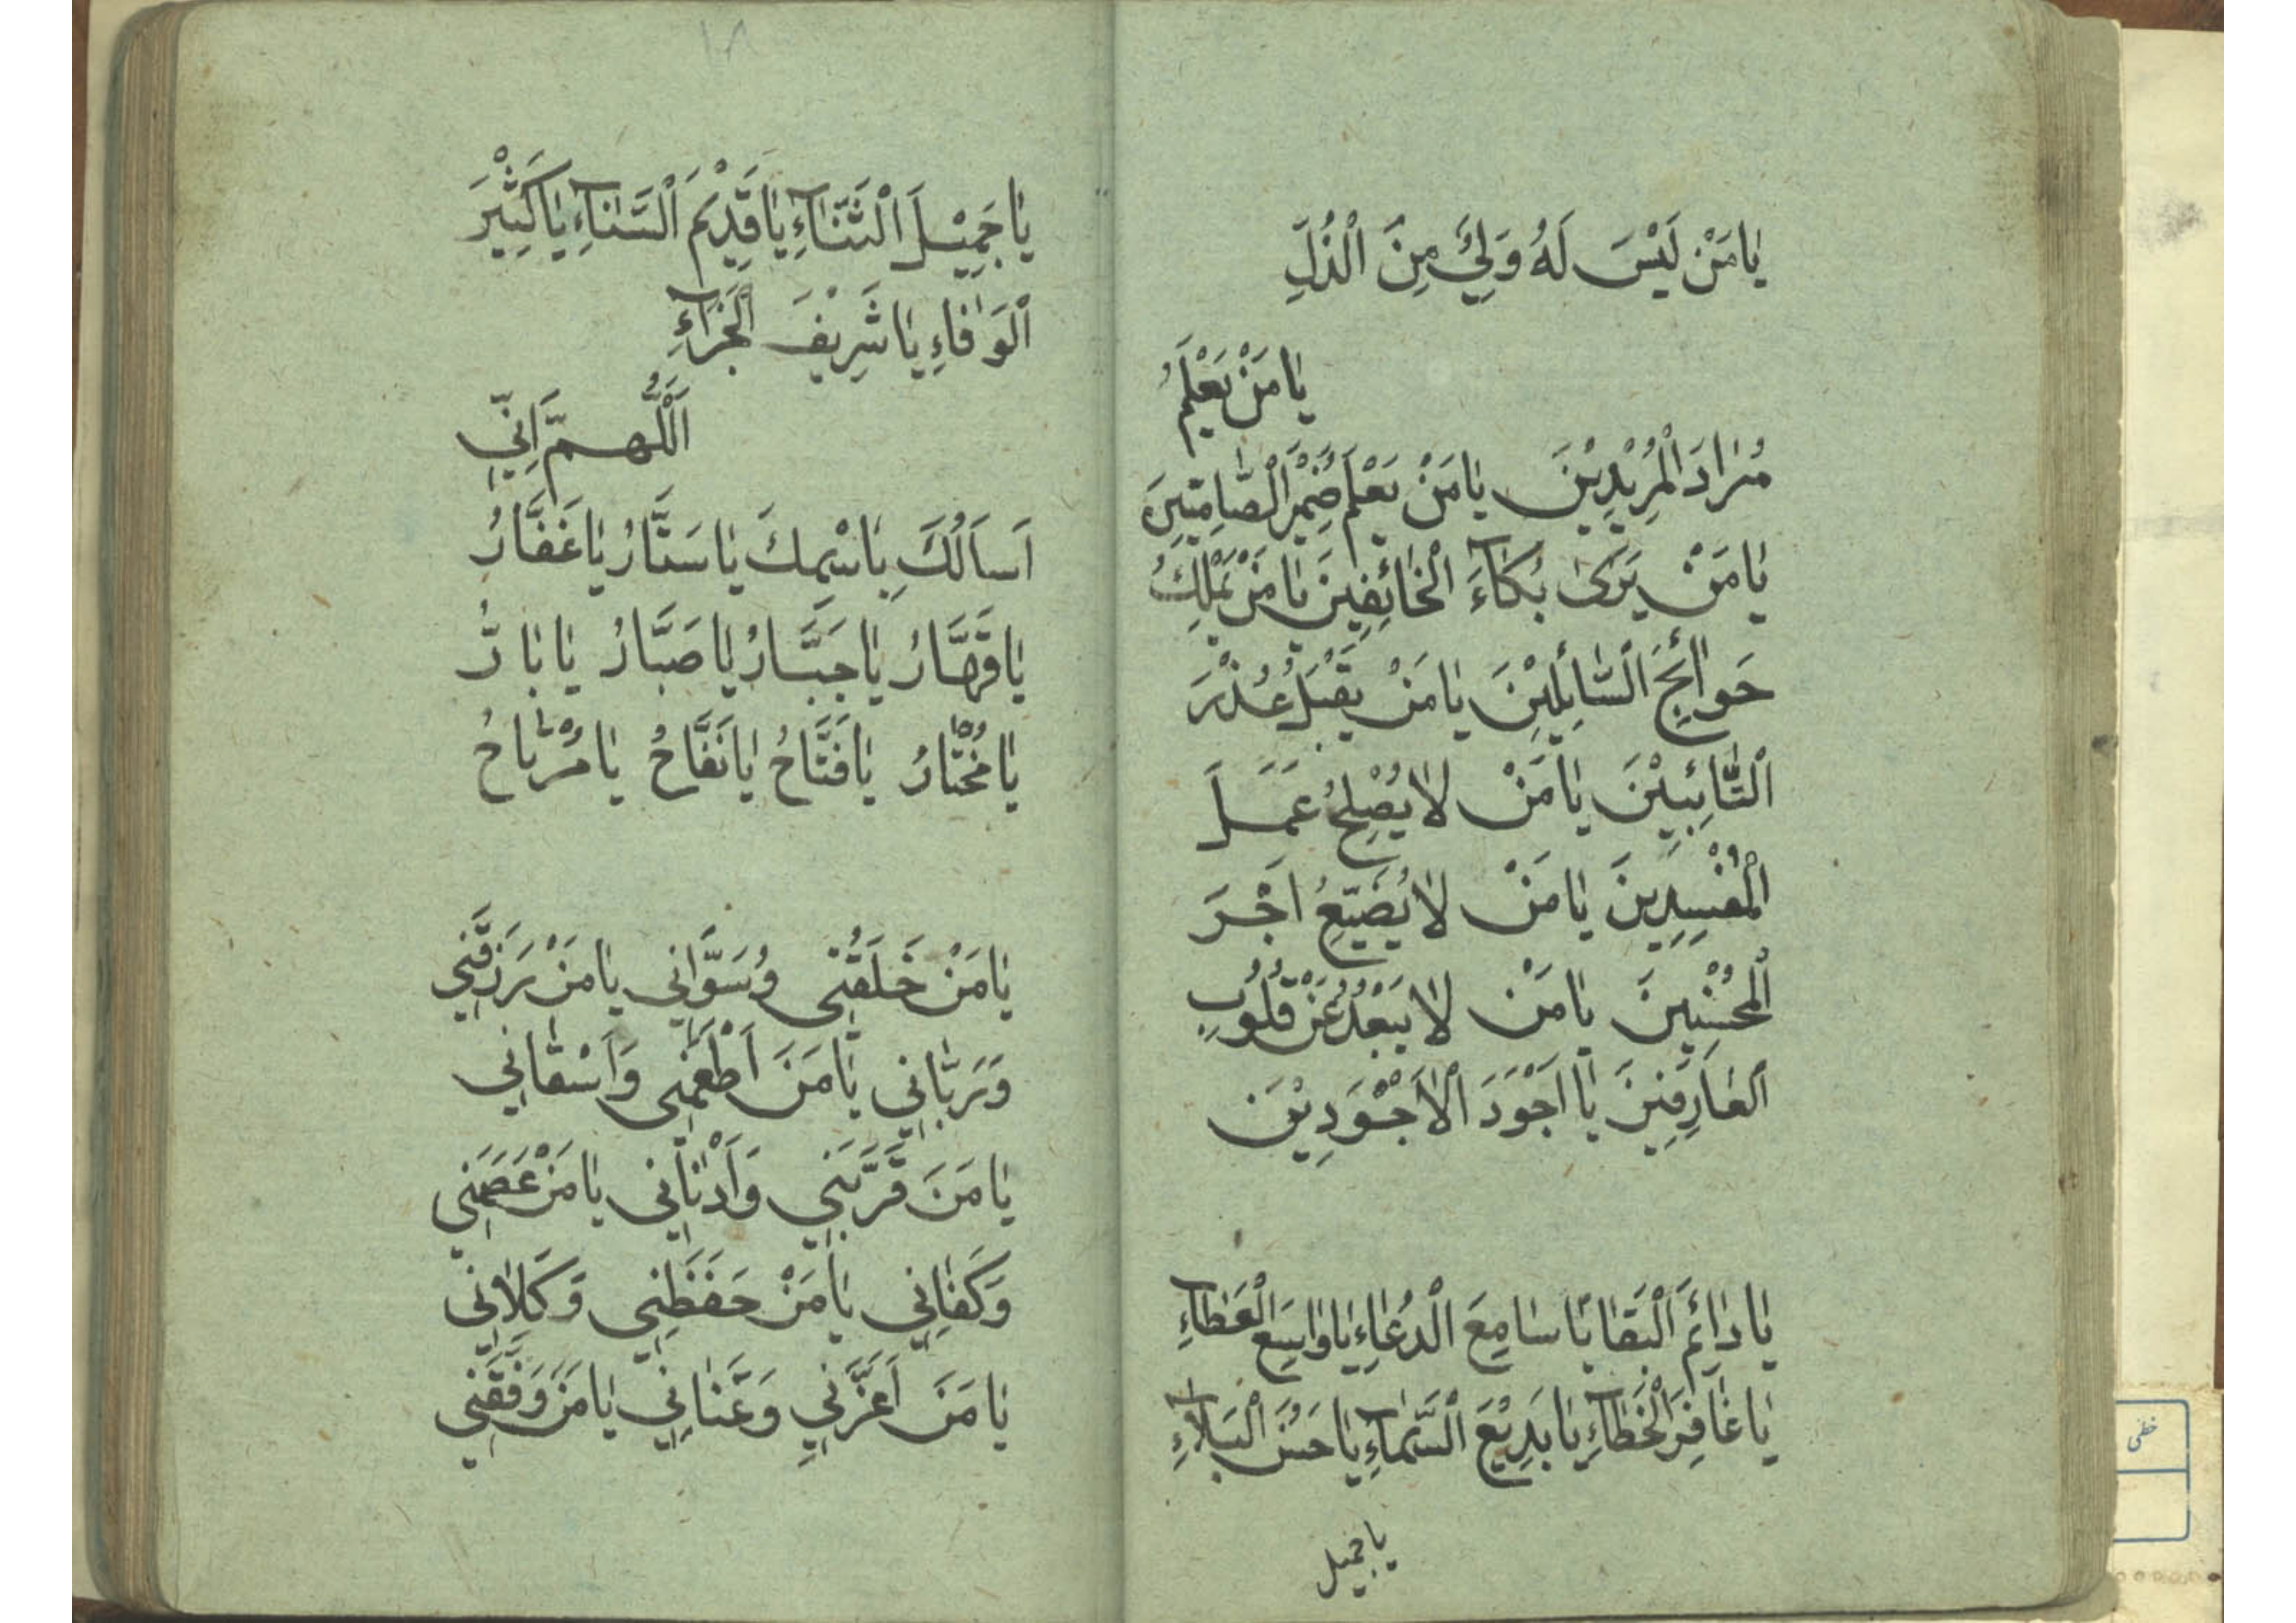 يَا مَنْ لَيْسَ لَهُ وَلِيٌّ مِنَ الْذُلِّ
يَا مَنْ يَعْلَمُ
مُرَادَ الْمُرِيْدِيْنَ يَا مَنْ يَعْلَمُ ضَمِيْرَ الْصَّامِتِينَ
يَا مَنْ يَرَى بُكَاءَ الْخَائِفِينَ يَا مَنْ يَمْلِكُ
حَوَائِجَ الْسَّائِلِيْنَ يَا مَنْ يَقْبَلُ عُذْرَ
الْتَّائِبِيْنَ يَا مَنْ لَا يُصْلِحُ عَمَلَ
الْمُفْسِدِينَ يَا مَنْ لَا يُضَيِّعُ اَجْرَ
الْمُحْسِنِينَ يَا مَنْ لَا يَبْعُدُ عَنْ قُلُوبِ
الْعَارِفِينَ يَا اَجْوَدَ الْاَجْوَدِيْنَ
يَا دَائِمَ الْبَقَا يَا سَامِعَ الْدُعَاءِ يَا وَاسِعَ الْعَطَاءِ
يَا غَافِرَ الْخَطَاءِ يَا بَدِيْعَ الْسَّمَاءِ يَا حَسَنَ الْبَلَاءِ
يا جميل
١٨
يَا جَمِيْلَ الْثَّنَاءِ يَا قَدِيْمَ الْسَّنَاءِ يَا كَثِيْرَ
الْوَفَاءِ يَا شَرِيْفَ الْجَزَاءِ
اَلْلّٰهُمَّ اِنِّي
اَسَاَلُكَ بِاسْمِكَ يَا سَتَّارُ يَا غَفَّارُ
يَا قَهَّارُ يَا جَبَّارُ يَا صَبَّارُ يَا بَارُّ
يَا مُخْتَارُ يَا فَتَّاحُ يَا نَفَّاحُ يَا مُرْتَاحُ
يَا مَنْ خَلَقَنِى وَسَوَّانِي يَا مَنْ رَزَقَنِي
وَرَبَّانِي يَا مَنَ اَطْعَمَنِى وَاَسْقَانِي
يَا مَنَ قَرَّبَنِي وَاَدْنَانِي يَا مَنْ عَصَمَنِي
وَكَفَانِي يَا مَنْ حَفَظَنِى وَكَلَانِي
يَا مَنَ اَعَزَّنِي وَغَنَانِي يَا مَنَ وَفَّقَنِي
خطى